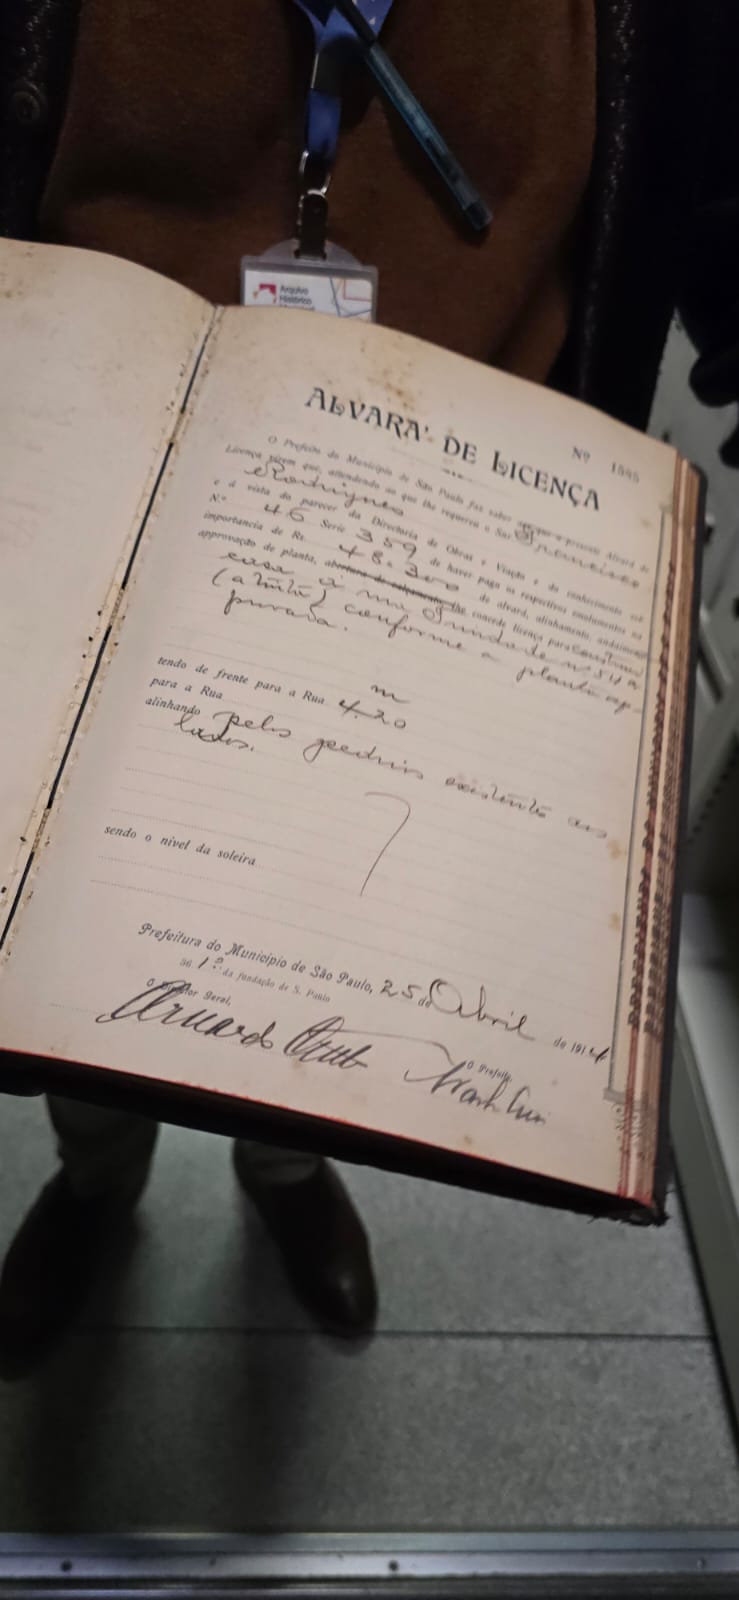 Arquivo
Histórico
ALVARA' DE LICENÇA
Nº 1595
O Prefeito do Municipio de São Paulo faz saber aos que o presente Alvará de
Licença virem que, attendendo ao que lhe requereu o Snr. Francisco
Rodrigues
e á vista do parecer da Directoria de Obras e Viação e do conhecimento sob
N.º 46 Serie 359 de haver pago os respectivos emolumentos na
importancia de Rs. 48.300 de alvará, alinhamento, andaimes
approvação de planta, abertura de calçamento lhe concede licença para construir
casa á rua Trindade nº 54 A
conforme a planta ap-
provada.
tendo de frente para a Rua 4.20 m
para a Rua
alinhando pelos predios existentes aos
lados.
sendo o nivel da soleira
Prefeitura do Municipio de São Paulo, 25 de Abril de 1914
361º da fundação de S. Paulo
O Director Geral,
O Prefeito,